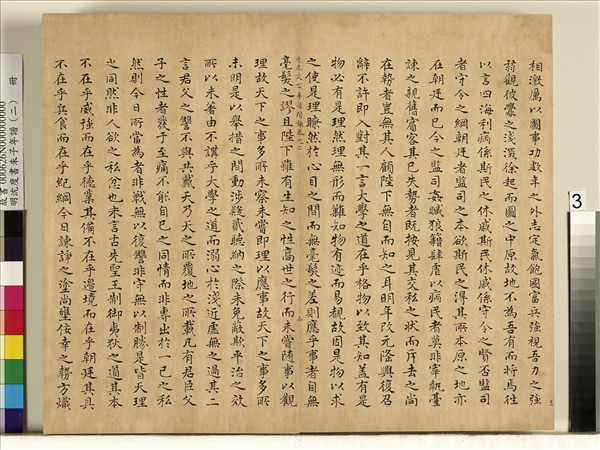 相激厲以圖事功數年之外志定氣飽國富兵強視吾力之強
弱觀彼釁之淺深徐起而圖之中原故地不為吾有而將焉往
以言四海利病係斯民之休戚斯民休戚係守令之賢否監司
者守令之綱朝廷者監司之本欲斯民之得其所本原之地亦
在朝廷而已今之監司姦贓狼籍肆虐以病民者莫非宰執臺
諫之親舊賓客其已失勢者既按見其交私之狀而斥去之尚
在勢者豈無其人顧陛下無自而知之耳明年改元隆興復召
辭不許即入對其一言大學之道在乎格物以致其知蓋有是
物必有是理然理無形而難知物有迹而易覩故因是物以求
之使是理瞭然於心目之間而無毫髮之差則應乎事者自無
毫髮之謬且陛下雖有生知之性高世之行而未嘗隨事以觀
理故天下之事多所未察未嘗即理以應事故天下之事多所
未明是以舉措之間動涉疑貳聽納之際未免蔽欺平治之效
所以未著由不講乎大學之道而溺心於淺近虛無之過其二
言君父之讐不與共戴天乃天之所覆地之所載凡有君臣父
子之性者發于至痛不能自已之同情而非專出於一已之私
然則今日所當為者非戰無以復讐非守無以制勝是皆天理
之同然非人欲之私忿也末言古先聖王制御夷狄之道其本
不在乎威強而在乎德業其備不在乎邊境而在乎朝廷其具
不在乎兵食而在乎紀綱今日諫諍之塗尚壅佞幸之勢方熾
故書000626N000000000
明沈度書朱子年譜(二) 冊
3